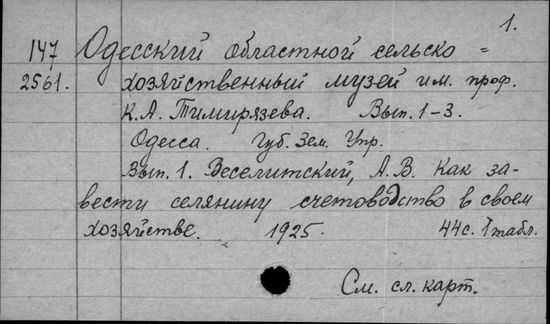 1.
147 Одесский областной сельско=
2561. хозяйственный музей им. проф.
К.А. Тимирязева. Вып. 1-3.
Одесса. Губ. Зем. Упр.
Вып. 1. Веселитский, А.В. Как за-
вести селянину счетоводство в своем
хозяйстве. 1925. 44с. 1 табл.
См. сл. карт.